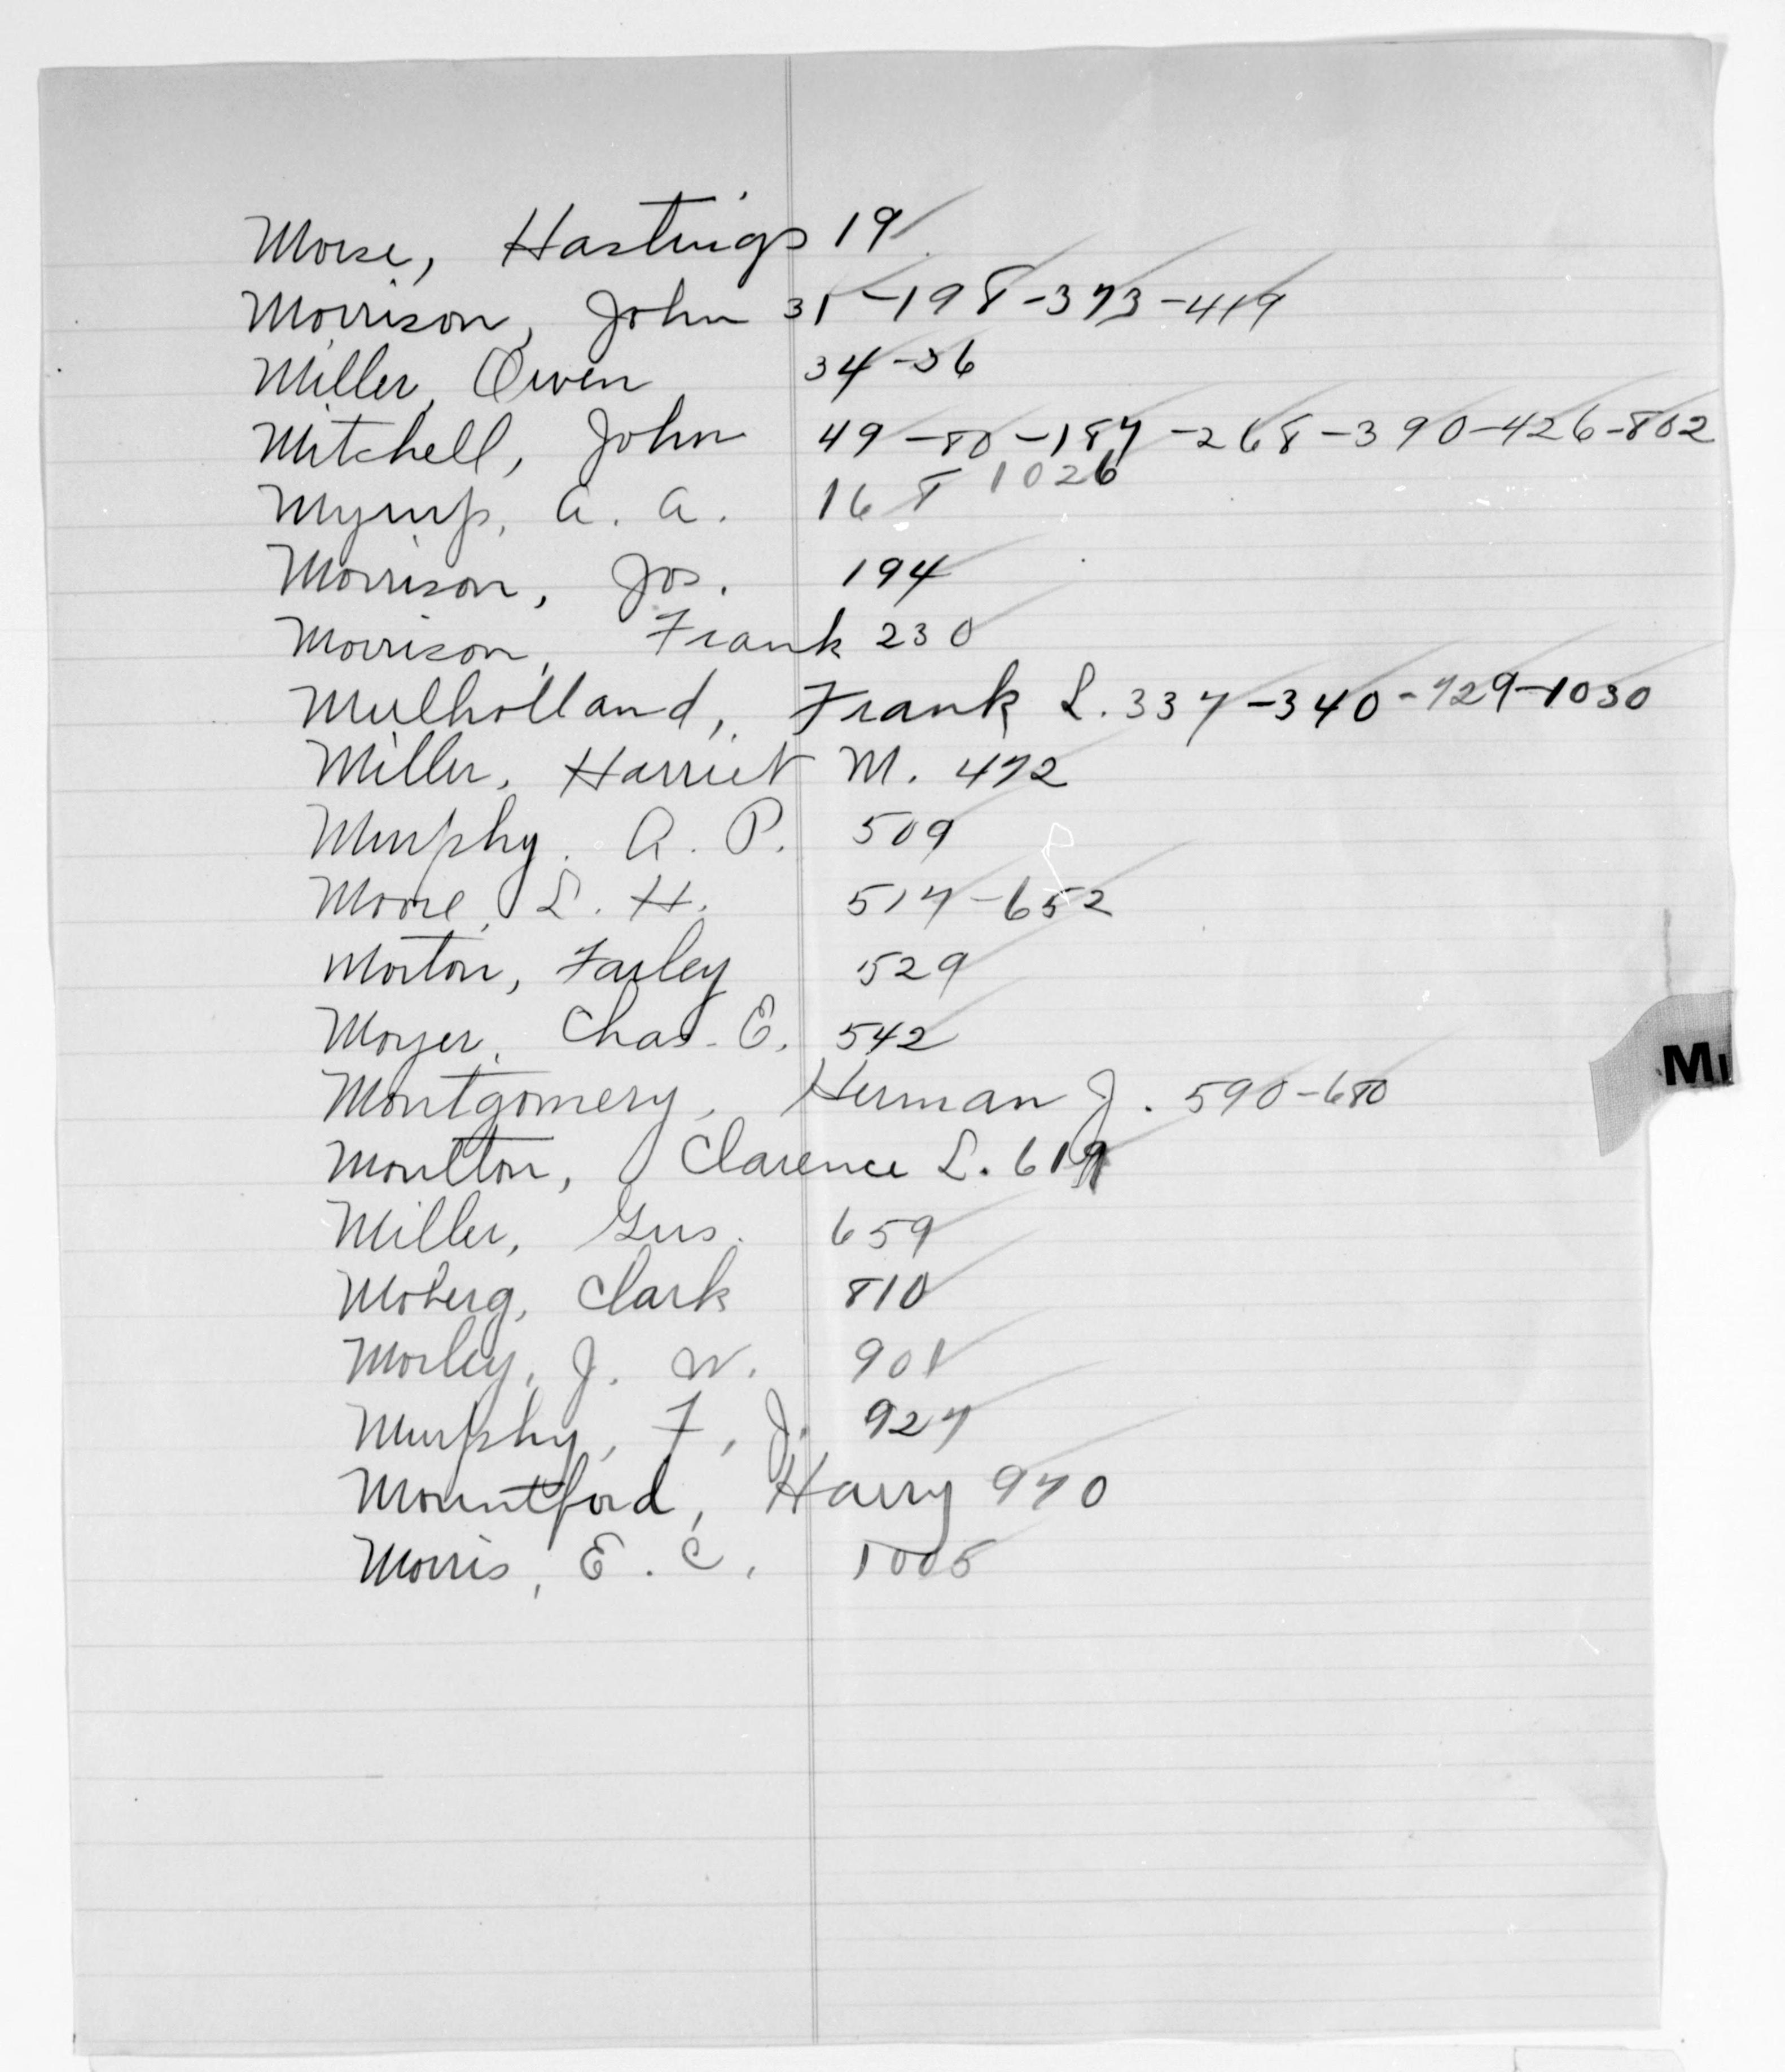 Morse, Hastings 19
Morrison, John 31-198-373-419
Miller, Owen 34-36
Mitchell, John 49-80-187-268-390-426-802
1026
Myrup, A. A. 168
Morrison, Jos. 194
Morrison, Frank 230
Mulholland, Frank L. 337-340-729-1030
Miller, Harriet M. 472
Murphy. A. P. 509
Moore, L. H. 517-652
Morton, Farley 529
Moyer, Chas. E. 542
Montgomery, Herman J. 590-680
Moulton, Clarence L. 619
Miller, Gus. 659
Moberg, Clark 810
Morley, J. W. 901
Murphy, F, J. 927
Mountford, Harry 970
Morris, E. C. 1005
Mi